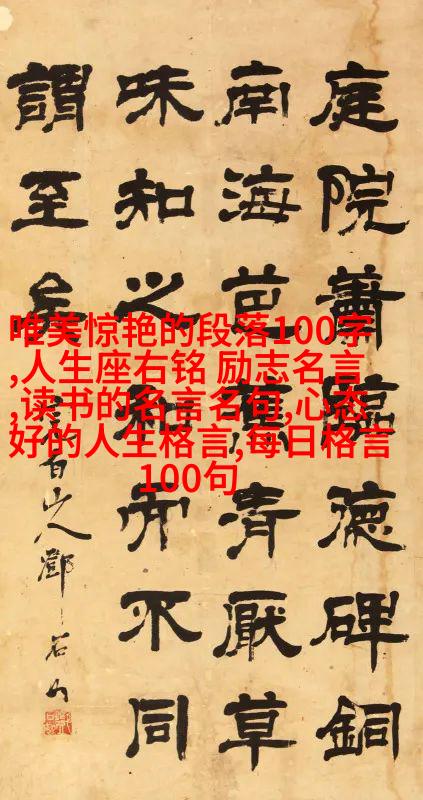 庭院蕭臨德碑銅
南海芭蕉清厭草
味知之和而不同
謂至矣
白山人鄧石如
唯美惊艳的段落100字
,人生座右铭 励志名言
,读书的名言名句,心态
好的人生格言,每日格言
100句